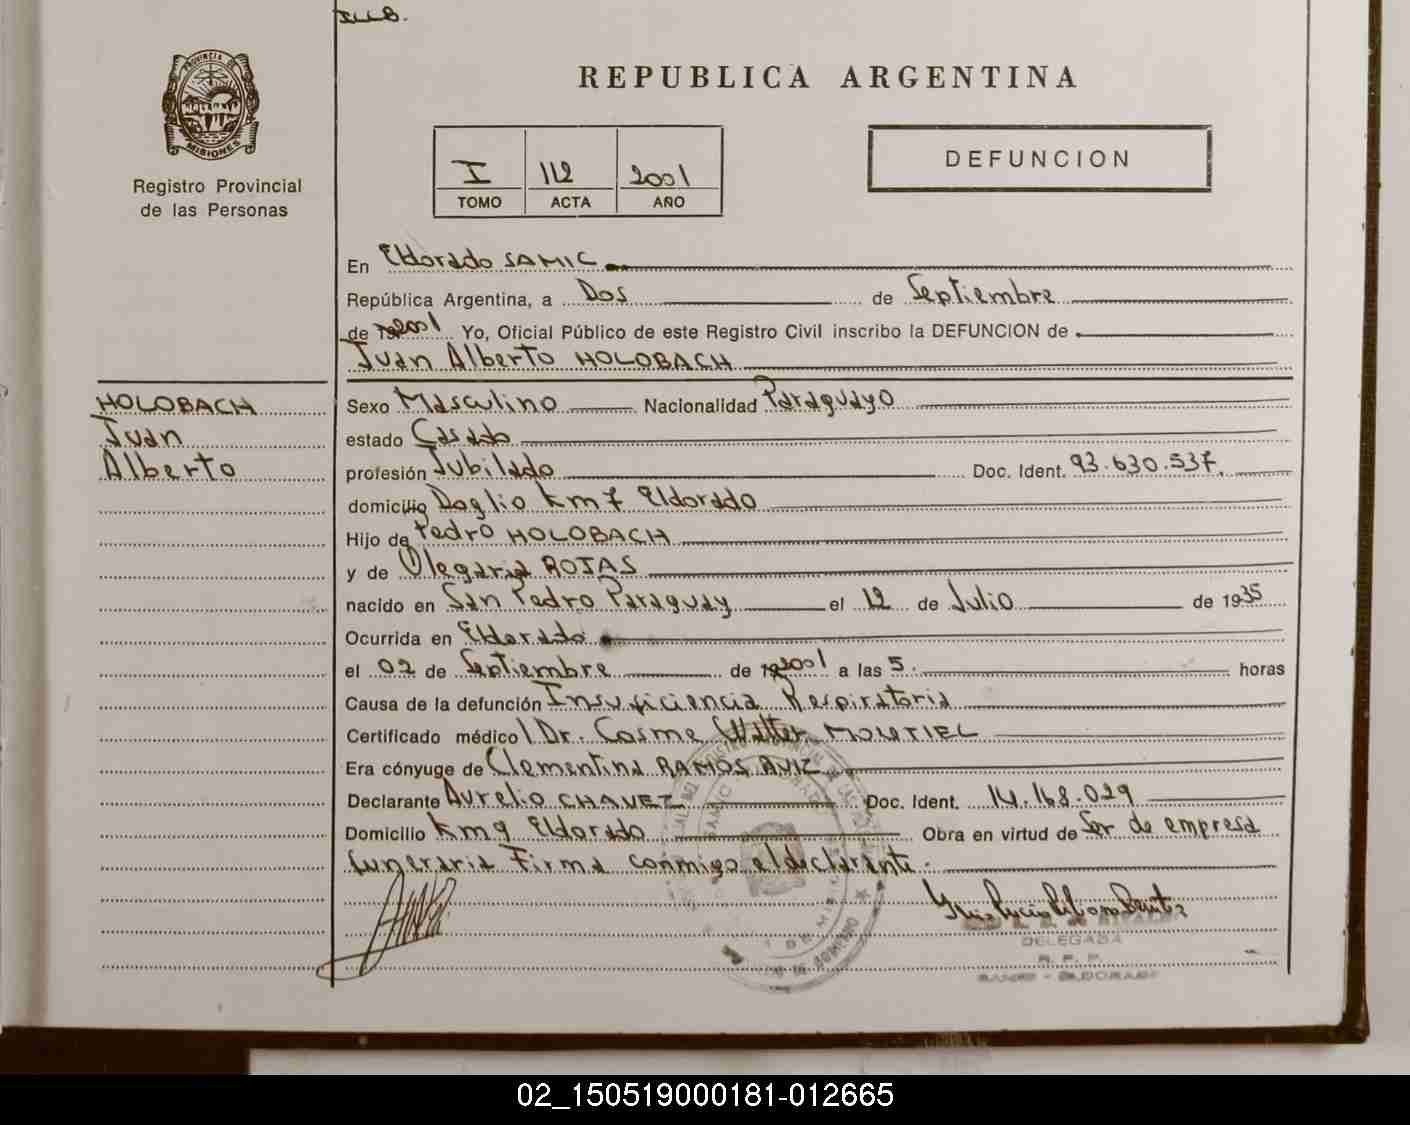 REPUBLICA ARGENTINA
PROVINCIA DE
MISIONES
Registro Provincial
de las Personas
I 112 2001
TOMO ACTA AÑO
DEFUNCION
En Eldorado SAMIC
República Argentina, a Dos de Septiembre
de 2001 Yo, Oficial Público de este Registro Civil inscribo la DEFUNCION de
Juan Alberto HOLOBACH
HOLOBACH
Juan
Alberto
Sexo Masculino Nacionalidad Paraguayo
estado Casado
profesión Jubilado Doc. Ident. 93.630.537.
domicilio Km 7 Eldorado
Hijo de Pedro HOLOBACH
y de Olegaria ROJAS
nacido en San Pedro Paraguay el 12 de Julio de 1935
Ocurrida en Eldorado
el 02 de Septiembre de 2001 a las 5. horas
Causa de la defunción Insuficiencia Respiratoria
Certificado médico Dr. Cosme Walter
Era cónyuge de Clementina RAMOS AVIZ
Declarante Aurelio CHAVEZ Doc. Ident. 14.168.029
Domicilio Km 9 Eldorado Obra en virtud de Ser de empresa
funeraria Firma conmigo el declarante.
DELEGADA
R. P. P.
SAMIC - ELDORADO
02_150519000181-012665